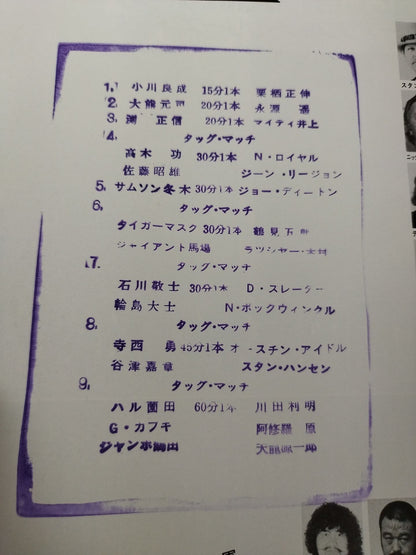 1, 小川良成 15分1本 栗栖正伸
2. 大熊元司 20分1本 永源 遥
3. 渕 正信 20分1本 マイティ井上
4. タッグ・マッチ
高木 功 30分1本 N・ロイヤル
佐藤昭雄 ジーン・リージョン
5. サムソン冬木 30分1本 ジョー・ディートン
6. タッグ・マッチ
タイガーマスク 30分1本 鶴見五郎
ジャイアント馬場 ラッシャー・木村
7. タッグ・マッチ
石川敬士 30分1本 D・スレーター
輪島大士 N・ボックウィンクル
8. タッグ・マッチ
寺西 勇 45分1本 オースチン・アイドル
谷津嘉章 スタン・ハンセン
9. タッグ・マッチ
ハル薗田 60分1本 川田利明
G・カブキ 阿修羅 原
ジャンボ鶴田 天龍源一郎
スタン
ニッ